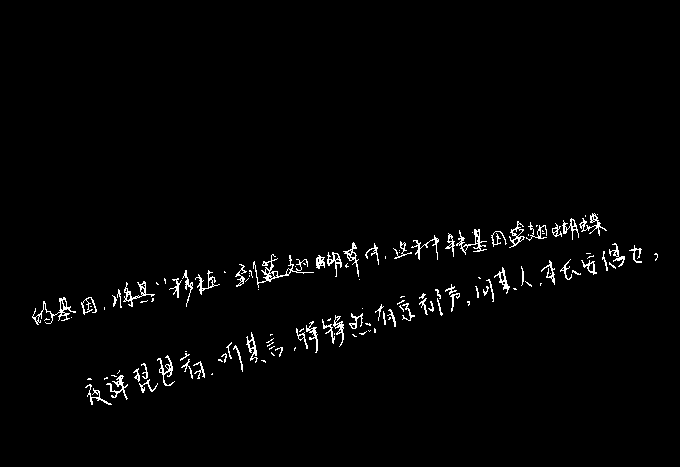 的基因，将其“移植”到蓝翅蝴草中，这种转基因蓝翅蝴蝶
夜弹琵琶者，听其言，铮铮然有京都声，问其人，本长安倡也，